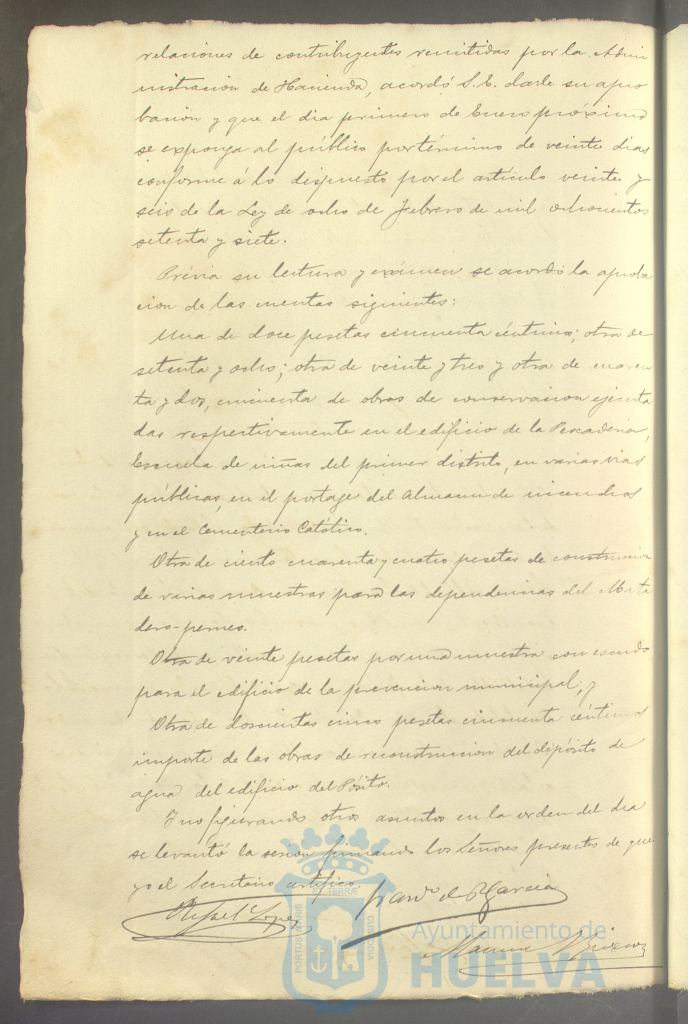 relaciones de contribuyentes remitidas por la Admi
nistracion de Hacienda, acordó S. E. darle su apro
bacion y que el dia primero de Enero próximo
se exponga al público por término de veinte dias
conforme á lo dispuesto por el artículo veinte y
seis de la Ley de ocho de Febrero de mil ochocientos
setenta y siete.
Prévia su lectura y exámen se acordó la aproba
cion de las cuentas siguientes:
Una de doce pesetas cincuenta céntimos; otra de
setenta y ocho; otra de veinte y tres y otra de cuaren
ta y dos, cincuenta de obras de conservacion ejecuta
das respectivamente en el edificio de la Pescaderia,
Escuela de niñas del primer distrito, en varias vias
públicas, en el portage del Almacen de incendios
y en el Cementerio Católico.
Otra de ciento cuarenta y cuatro pesetas de construccion
de varias muestras para las dependencias del Mata
dero-
Otra de veinte pesetas por una muestra con escudo
para el edificio de la prevencion municipal, y
Otra de doscientas cinco pesetas cincuenta céntimos
importe de las obras de reconstruccion del depósito de
agua del edificio del Pósito.
Y no figurando otros asuntos en la orden del dia
se levantó la sesion firmando los Señores presentes de que
yo el Secretario certifico.
Rafael Lopez
de P. Garcia
PORTUS MARIS ET TERRÆ CUSTODIA
Ayuntamiento de
HUELVA